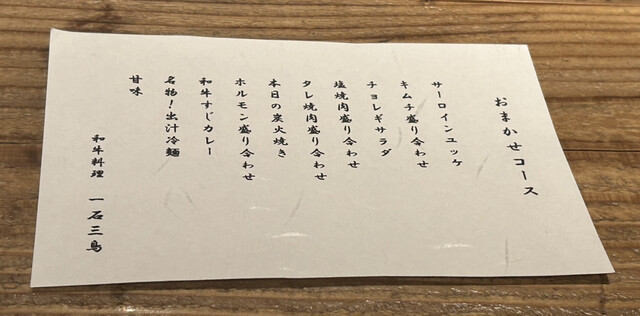 おまかせコース
サーロインユッケ
キムチ盛り合わせ
チョレギサラダ
塩焼肉盛り合わせ
タレ焼肉盛り合わせ
本日の炭火焼き
ホルモン盛り合わせ
和牛すじカレー
名物!出汁冷麺
甘味
和牛料理 一石三鳥